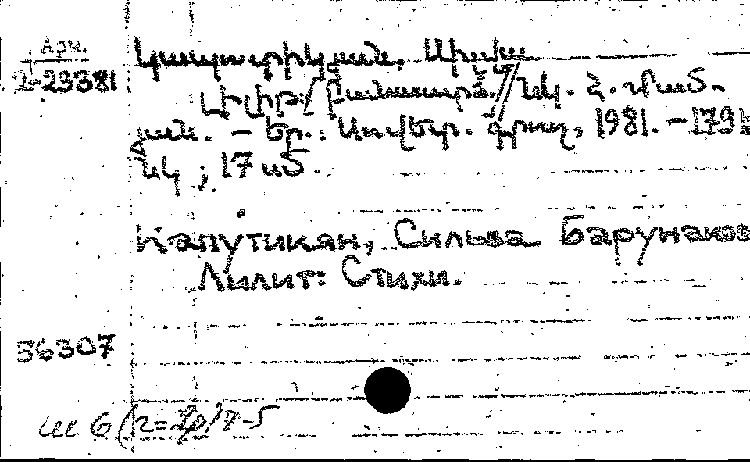 Арм.
2-29381
Կապուտիկյան, Սիլվա
Լիլիթ / բանաստղծ. // նկ. Հ. Մամ-
յան. – Եր.: Սովետ. գրող, 1981. – 179
նկ ; 17 սմ.
Капутикян, Сильва Барунаков
Лилит: Стихи.
56307